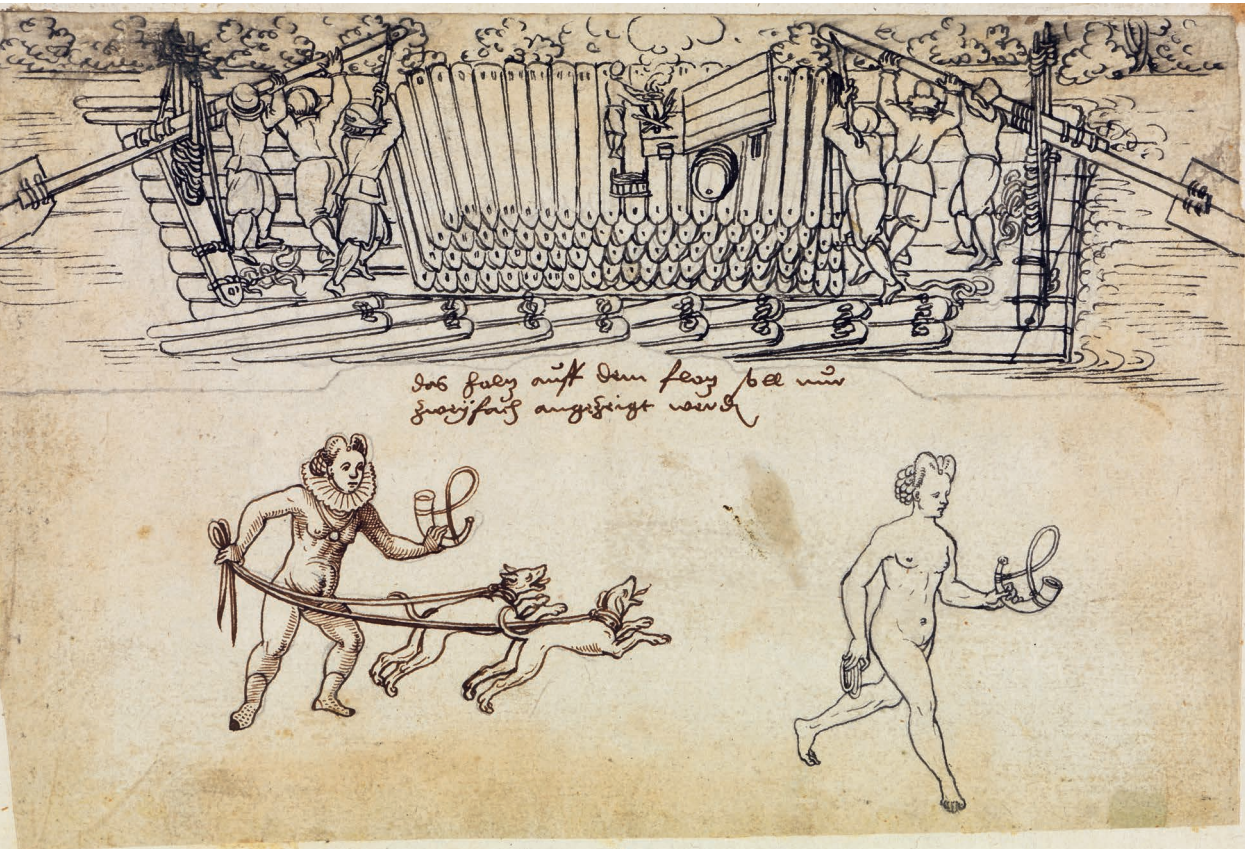 das holz auff dem floz soll nur
zweÿfach angezeigt werdn